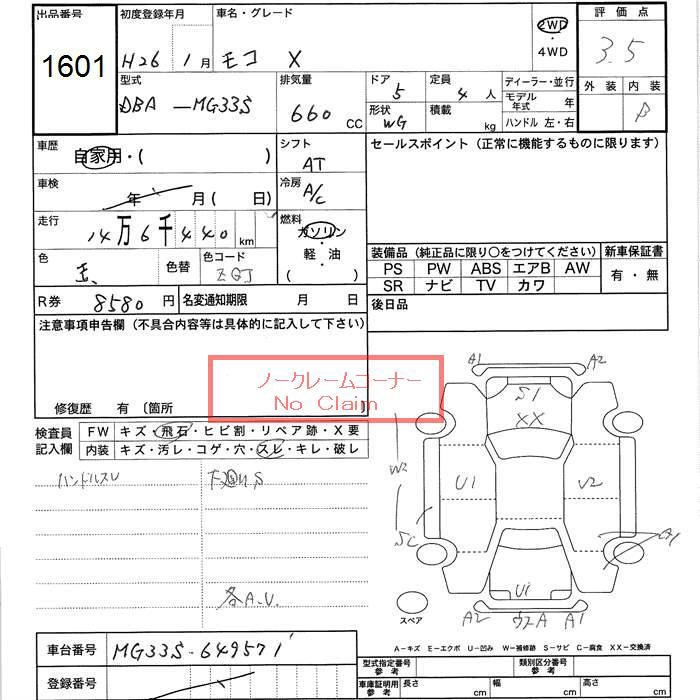 出品番号 初度登録年月 車名・グレード 評価点
1601 H26年 1月 モコ X 2WD・4WD 3.5
外装 内装 B
型式 排気量 ドア 定員 ディーラー・並行
DBA-MG33S 660 CC 5 4人 モデル年式 年
形状 WG 積載 kg ハンドル 左・右
車歴 自家用・( ) シフト AT セールスポイント（正常に機能するものに限ります）
車検 年 月( 日) 冷房 A/C
走行 14万6千440km 燃料 ガソリン・軽油 ( )
装備品（純正品に限り○をつけてください） 新車保証書
色 色替 色コード ZGJ PS PW ABS エアB AW 有・無
SR ナビ TV カワ
R券 8580円 名変通知期限 月 日 後日品
注意事項申告欄（不具合内容等は具体的に記入して下さい）
ノークレームコーナー
No Claim
修復歴 有〔箇所
検査員記入欄 FW キズ・飛石・ヒビ割・リペア跡・X要
内装 キズ・汚レ・コゲ・穴・スレ・キレ・破レ
ハンドルスレ
各A.U.
A1 A2
S1
XX
W2 U1 U2
SC A1
U1
スペア A2 A1
A-キズ E-エクボ U-凹み W-補修跡 S-サビ C-腐食 XX-交換済
車台番号 MG33S-649571
型式指定番号参考 類別区分番号参考
登録番号 車庫証明用参考 長さ cm 幅 cm 高さ cm